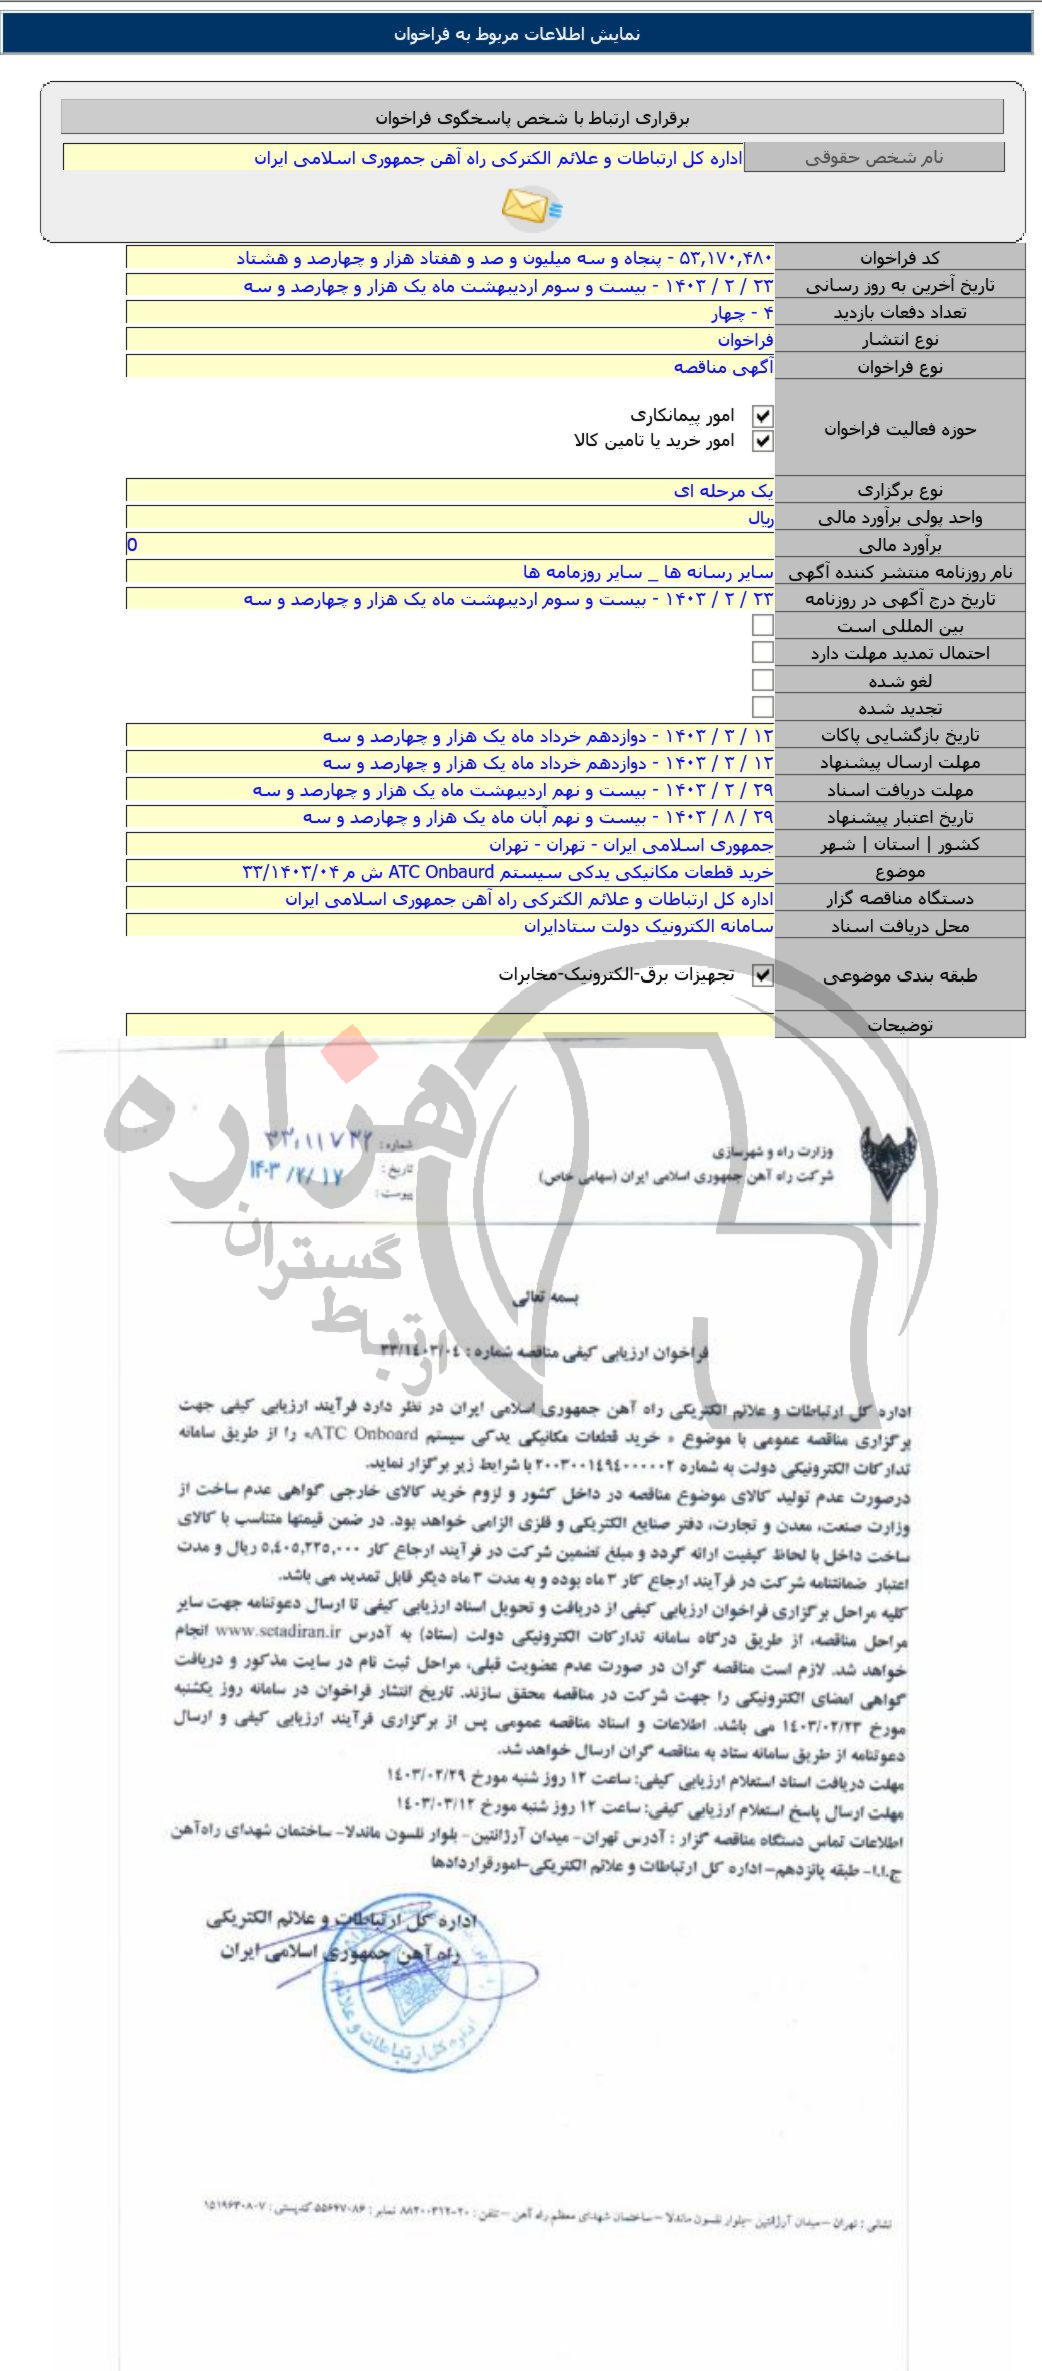 نمایش اطلاعات مربوط به فراخوان
برقراری ارتباط با شخص پاسخگوی فراخوان
نام شخص حقوقی اداره کل ارتباطات و علائم الکترکی راه آهن جمهوری اسلامی ایران
کد فراخوان ۵۳,۱۷۰,۴۸۰ - پنجاه و سه میلیون و صد و هفتاد هزار و چهارصد و هشتاد
تاریخ آخرین به روز رسانی ۲۳ / ۲ / ۱۴۰۳ - بیست و سوم اردیبهشت ماه یک هزار و چهارصد و سه
تعداد دفعات بازدید ۴ - چهار
نوع انتشار فراخوان
نوع فراخوان آگهی مناقصه
حوزه فعالیت فراخوان
امور پیمانکاری
امور خرید یا تامین کالا
نوع برگزاری یک مرحله ای
واحد پولی برآورد مالی ریال
برآورد مالی 0
نام روزنامه منتشر کننده آگهی سایر رسانه ها _ سایر روزمامه ها
تاریخ درج آگهی در روزنامه ۲۳ / ۲ / ۱۴۰۳ - بیست و سوم اردیبهشت ماه یک هزار و چهارصد و سه
بین المللی است
احتمال تمدید مهلت دارد
لغو شده
تجدید شده
تاریخ بازگشایی پاکات ۱۲ / ۳ / ۱۴۰۳ - دوازدهم خرداد ماه یک هزار و چهارصد و سه
مهلت ارسال پیشنهاد ۱۲ / ۳ / ۱۴۰۳ - دوازدهم خرداد ماه یک هزار و چهارصد و سه
مهلت دریافت اسناد ۲۹ / ۲ / ۱۴۰۳ - بیست و نهم اردیبهشت ماه یک هزار و چهارصد و سه
تاریخ اعتبار پیشنهاد ۲۹ / ۸ / ۱۴۰۳ - بیست و نهم آبان ماه یک هزار و چهارصد و سه
کشور | استان | شهر جمهوری اسلامی ایران - تهران - تهران
موضوع خرید قطعات مکانیکی یدکی سیستم ATC Onbaurd ش م ۳۳/۱۴۰۳/۰۴
دستگاه مناقصه گزار اداره کل ارتباطات و علائم الکترکی راه آهن جمهوری اسلامی ایران
محل دریافت اسناد سامانه الکترونیک دولت ستادایران
طبقه بندی موضوعی تجهیزات برق-الکترونیک-مخابرات
توضیحات
هزاره
گستران
ارتباط
وزارت راه و شهرسازی
شرکت راه آهن جمهوری اسلامی ایران (سهامی خاص)
شماره:
تاریخ: ۱۴۰۳/۲/۱۷
پیوست:
بسمه تعالی
فراخوان ارزیابی کیفی مناقصه شماره : ۳۳/۱٤۰۳/۰٤
اداره کل ارتباطات و علائم الکتریکی راه آهن جمهوری اسلامی ایران در نظر دارد فرآیند ارزیابی کیفی جهت
برگزاری مناقصه عمومی با موضوع « خرید قطعات مکانیکی یدکی سیستم ATC Onboard» را از طریق سامانه
تدارکات الکترونیکی دولت به شماره ۲۰۰۳۰۰۱٤۹٤۰۰۰۰۰۲ با شرایط زیر برگزار نماید.
درصورت عدم تولید کالای موضوع مناقصه در داخل کشور و لزوم خرید کالای خارجی گواهی عدم ساخت از
وزارت صنعت، معدن و تجارت، دفتر صنایع الکتریکی و فلزی الزامی خواهد بود. در ضمن قیمتها متناسب با کالای
ساخت داخل با لحاظ کیفیت ارائه گردد و مبلغ تضمین شرکت در فرآیند ارجاع کار ۵,٤۰۵,۲۲۵,۰۰۰ ریال و مدت
اعتبار ضمانتنامه شرکت در فرآیند ارجاع کار ۳ ماه بوده و به مدت ۳ ماه دیگر قابل تمدید می باشد.
کلیه مراحل برگزاری فراخوان ارزیابی کیفی از دریافت و تحویل اسناد ارزیابی کیفی تا ارسال دعوتنامه جهت سایر
مراحل مناقصه، از طریق درگاه سامانه تدارکات الکترونیکی دولت (ستاد) به آدرس www.setadiran.ir انجام
خواهد شد. لازم است مناقصه گران در صورت عدم عضویت قبلی، مراحل ثبت نام در سایت مذکور و دریافت
گواهی امضای الکترونیکی را جهت شرکت در مناقصه محقق سازند. تاریخ انتشار فراخوان در سامانه روز یکشنبه
مورخ ۱٤۰۳/۰۲/۲۳ می باشد. اطلاعات و اسناد مناقصه عمومی پس از برگزاری فرآیند ارزیابی کیفی و ارسال
دعوتنامه از طریق سامانه ستاد به مناقصه گران ارسال خواهد شد.
مهلت دریافت اسناد استعلام ارزیابی کیفی: ساعت ۱۲ روز شنبه مورخ ۱٤۰۳/۰۲/۲۹
مهلت ارسال پاسخ استعلام ارزیابی کیفی: ساعت ۱۲ روز شنبه مورخ ۱٤۰۳/۰۳/۱۲
اطلاعات تماس دستگاه مناقصه گزار : آدرس تهران- میدان آرژانتین- بلوار نلسون ماندلا- ساختمان شهدای راه‌آهن
ج.ا.ا- طبقه پانزدهم- اداره کل ارتباطات و علائم الکتریکی-امورقراردادها
اداره کل ارتباطات و علائم الکتریکی
راه آهن جمهوری اسلامی ایران
اداره کل ارتباطات و علائم
نشانی : تهران –میدان آرژانتین –بلوار نلسون ماندلا –ساختمان شهدای معظم راه آهن –تلفن : نمابر : ۵۵۶۴۷۰۸۶ کدپستی : ۱۵۱۹۶۳۰۸۰۷